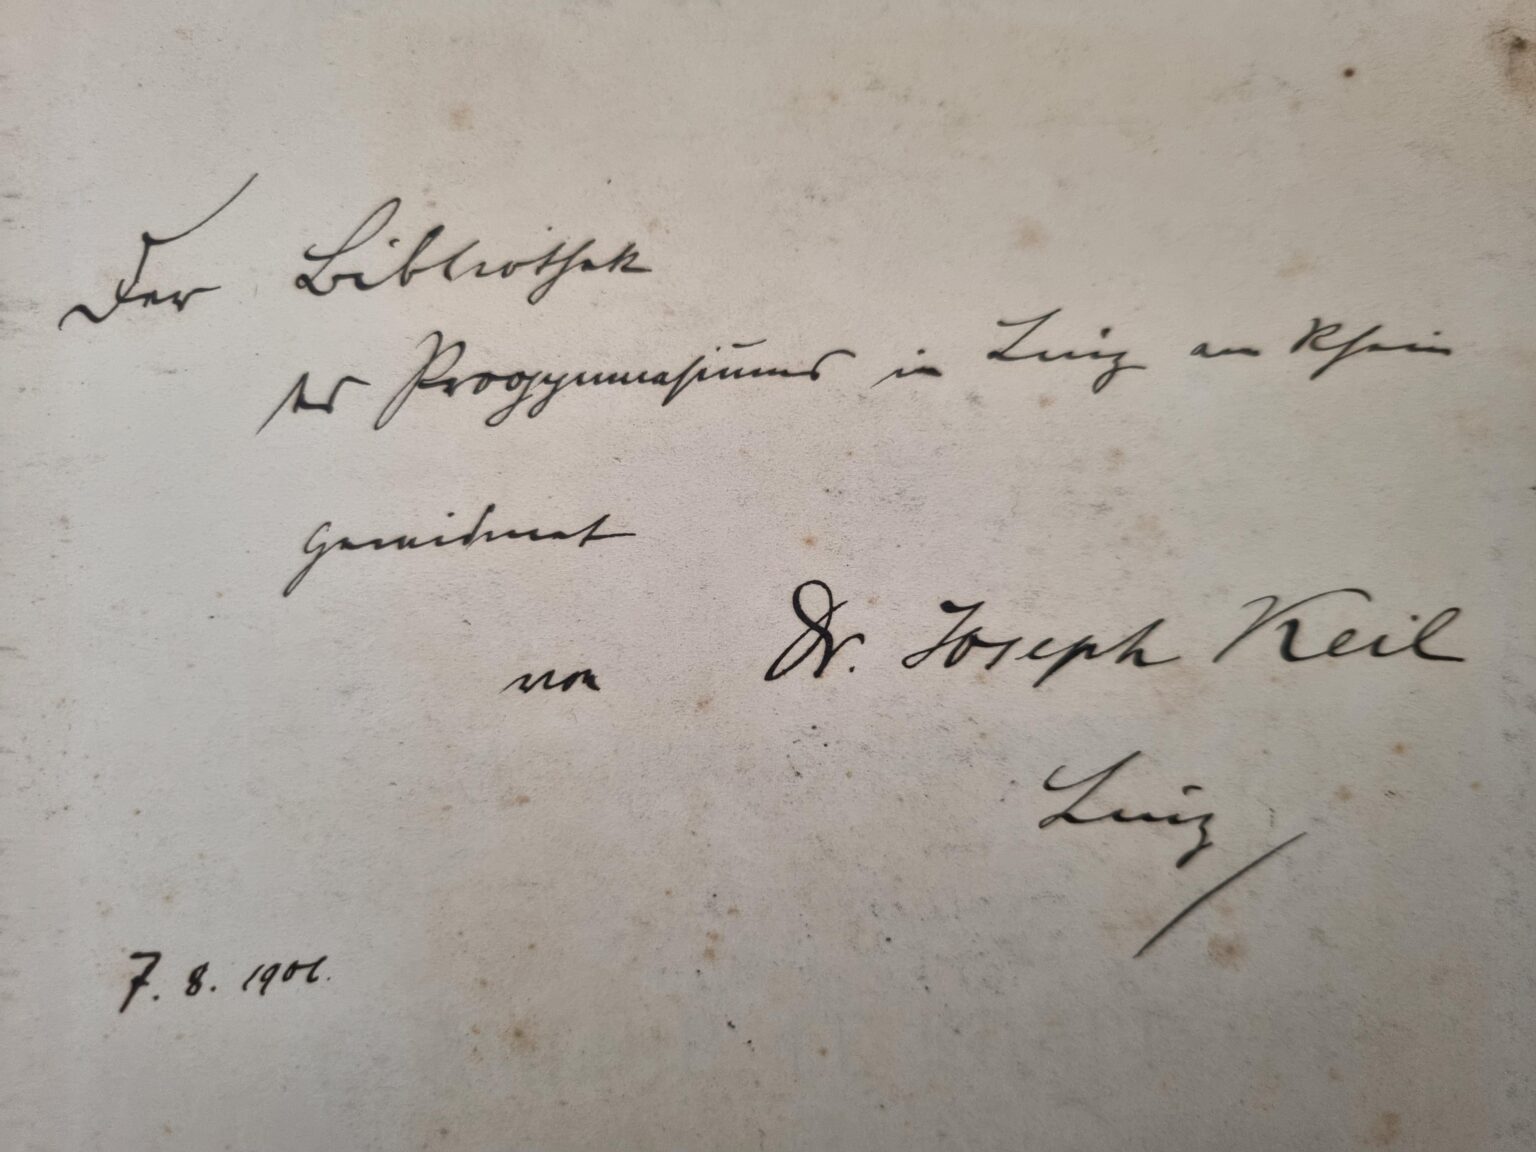 Der Bibliothek
des Progymnasiums in Linz am Rhein
gewidmet
von Dr. Joseph Keil
Linz
7. 8. 1901.